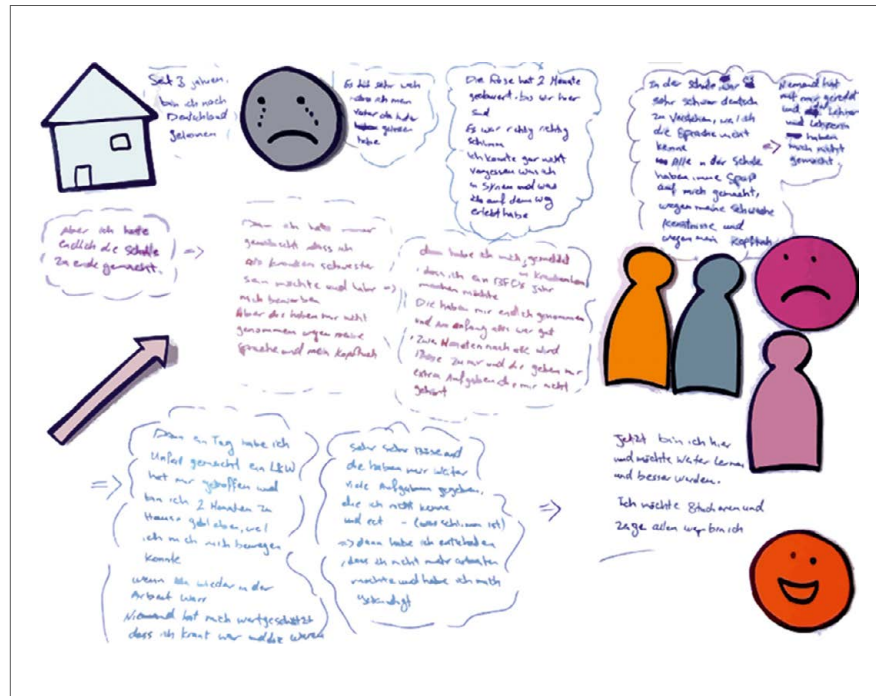 Seit 3 jahren,
bin ich nach
Deutschland
gekommen
Es tut sehr weh
also ich mein
Vater
habe
Die Reise hat 2 Monate
gedauert, bis wir hier
sind
Es war richtig richtig
schlimm
ich konnte gar nicht
vergessen was ich
in Syrien und was
ich auf dem weg
erlebt habe
In der Schule war
sehr schwer deutsch
zu verstehen, weil ich
die Sprache nicht
kenne
Alle in der Schule
haben immer Spaß
auf mich gemacht,
wegen meine Schwache
Kenntnisse und
wegen mein Kopftuch
=> Niemand hat
mit mir geredet
und Lehrer
und Lehrerin
haben
auch nichts
gemacht.
Aber ich hatte
endlich die Schule
zu ende gemacht.
=> Dann ich hatte immer
gewünscht, dass ich
als Kranken schwester
sein möchte und habe =>
mich beworben
Aber die haben mir nicht
genommen wegen meine
Sprache und mein Kopftuch
dann habe ich mich, gemeldet
in Krankenhaus
, dass ich ein Jahr
machen möchte
Die haben mir endlich genommen
und am anfang alles war gut
, Zwei Monaten nach wird
Böse zu mir und die geben mir
extra Aufgaben die mir nicht
gehört
=> Dann ein Tag habe ich
Unfall gemacht ein LKW
hat mir getroffen und
bin ich 2 Monaten zu
Hause geblieben, weil
ich mich nicht bewegen
konnte
wenn ich wieder in der
Arbeit war
Niemand hat mich wertgeschätzt
dass ich krank war und die waren
sehr sehr Böse und
die haben mir weiter
viele Aufgaben gegeben,
die ich nicht kenne
und ect - (was schlimm ist)
=> dann habe ich entschieden
, dass ich nicht mehr arbeiten
möchte und habe ich mich
gekündigt
=>
Jetzt bin ich hier
und möchte weiter lernen
und besser werden.
Ich möchte Studieren und
zage allen wer bin ich